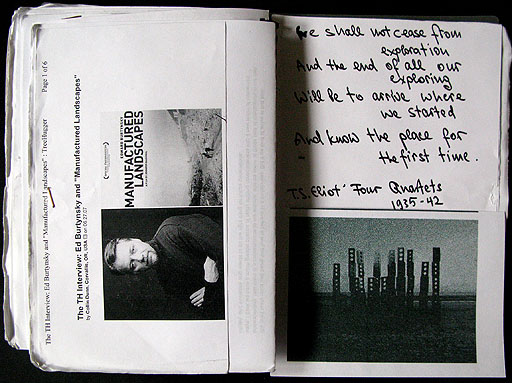 The TH Interview: Ed Burtynsky and "Manufactured Landscapes" : TreeHugger
Page 1 of 6
The TH Interview: Ed Burtynsky and "Manufactured Landscapes"
by Collin Dunn, Corvallis, OR, USA on 08.27.07
EDWARD BURTYNSKY
MANUFACTURED
LANDSCAPES
We shall not cease from
exploration
And the end of all our
exploring
Will be to arrive where
we started
And know the place for
the first time.
T.S. Eliot' Four Quartets
1935-42